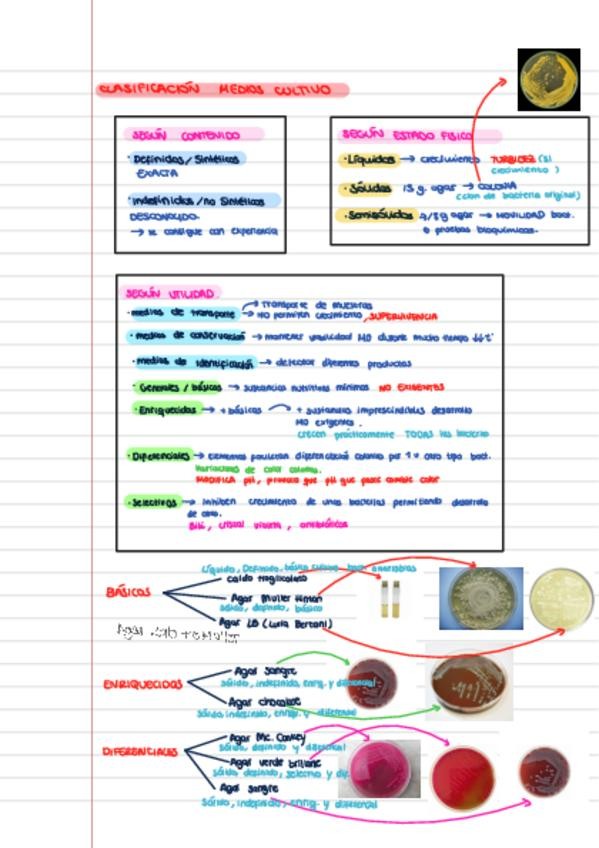 CLASIFICACIÓN MEDIOS CULTIVO
SEGÚN CONTENIDO
· Definidos / Sintéticos
EXACTA
· Indefinidos / no Sintéticos
DESCONOCIDO.
→ se consigue con experiencia
SEGÚN ESTADO FISICO
· Líquidos → crecimiento TURBIDEZ (si
crecimiento)
· Sólidos 15 g. agar → COLONIA
(clon de bacteria original)
· Semisólidos agar → MOVILIDAD bact.
o pruebas bioquímicas.
SEGÚN UTILIDAD.
· medios de transporte → Transporte de muestras
→ no permiten crecimiento, SUPERVIVENCIA
· medios de conservación → mantener viabilidad MO durante mucho tiempo
· medios de identificación → detectar diferentes productos
· Generales / básicos → sustancias nutritivas mínimas NO EXIGENTES
· Enriquecidos → + básicos + sustancias imprescindibles desarrollo
MO exigentes.
crecen prácticamente TODAS las bacterias
· Diferenciales → elementos diferenciación colonias por 1 u otro tipo bact.
Variaciones de color colonia.
MODIFICA pH, provoca que pH que cambie color
· Selectivos → inhiben crecimiento de unas bacterias permitiendo desarrollo
de otras.
Bilis, cristal violeta, antibióticos
BÁSICOS
Líquido, Definido, básico cultivo bact. anaerobias
Caldo tioglicolato
Agar Muller Hinton
sólido, definido, básico
Agar LB (Luria Bertani)
ENRIQUECIDOS
Agar sangre
sólido, indefinido, enriq. y diferencial
Agar chocolate
sólido, indefinido, enriq. y diferencial
DIFERENCIALES
Agar Mc. Conkey
sólido, definido y diferencial
Agar verde brillante
sólido, definido, selectivo y dif.
Agar sangre
sólido, indefinido, enriq. y diferencial